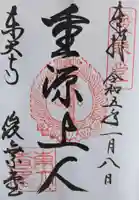 奉拝
令和五年一月八日
重源上人
東大寺
俊乗堂